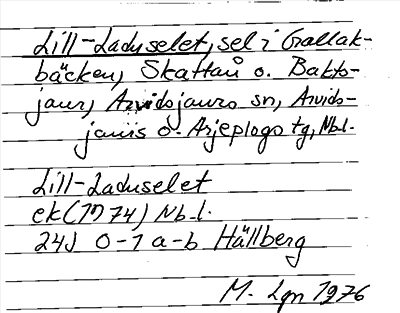 Lill-Laduselet, sel i Grallak-
bäcken, Skattån o. Bakto-
jaur, Arvidsjaurs sn, Arvids-
jaurs o. Arjeplogs tg, Nb.l.
Lill-Laduselet
ek (1974) Nb.l.
24J 0-1 a-b Hällberg
M. Lgn 1976